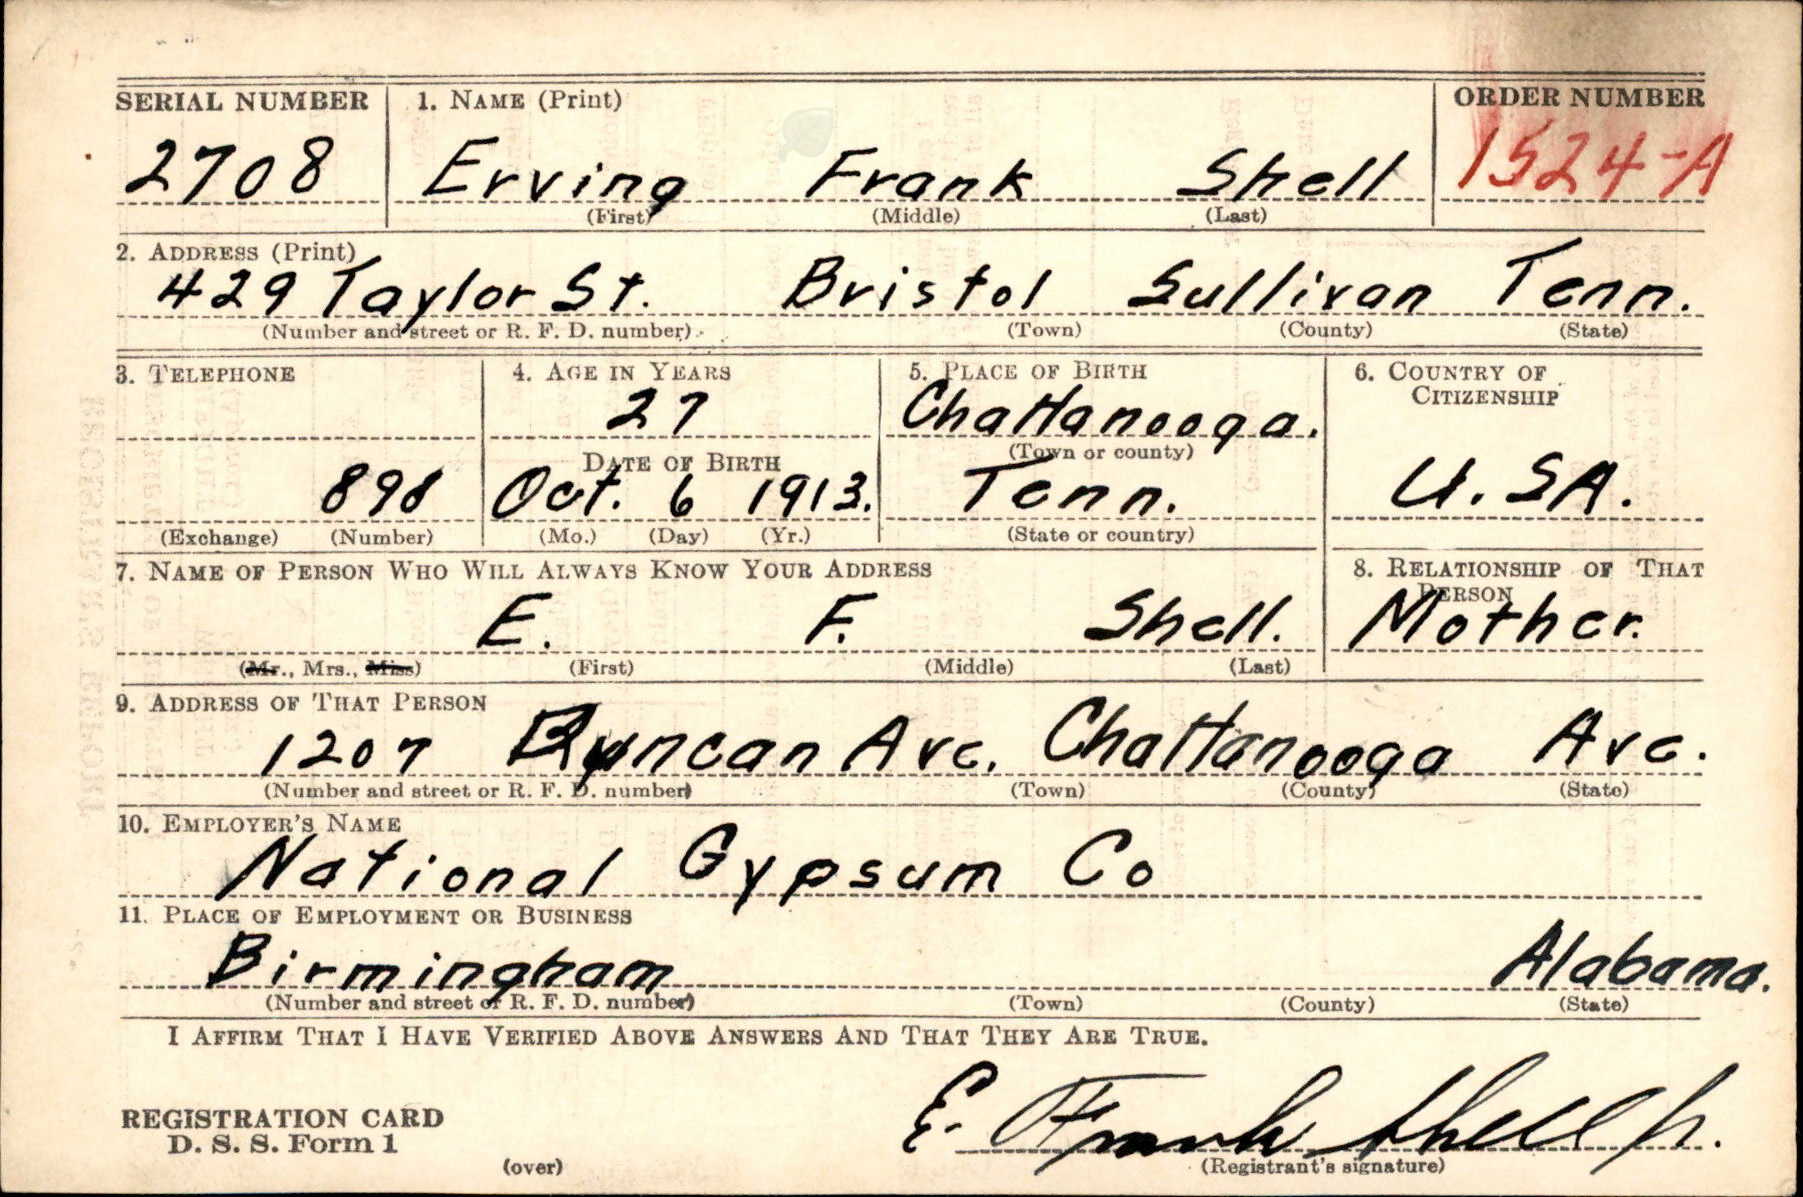 SERIAL NUMBER 1. NAME (Print) ORDER NUMBER
2708 Erving Frank Shell 1524-A
(First) (Middle) (Last)
2. ADDRESS (Print)
429 Taylor St. Bristol Sullivan Tenn.
(Number and street or R. F. D. number) (Town) (County) (State)
3. TELEPHONE 4. AGE IN YEARS 5. PLACE OF BIRTH 6. COUNTRY OF CITIZENSHIP
27 Chattanooga.
DATE OF BIRTH (Town or county)
898 Oct. 6 1913. Tenn. U.SA.
(Exchange) (Number) (Mo.) (Day) (Yr.) (State or country)
7. NAME OF PERSON WHO WILL ALWAYS KNOW YOUR ADDRESS 8. RELATIONSHIP OF THAT PERSON
E. F. Shell. Mother.
(Mr., Mrs., Miss) (First) (Middle) (Last)
9. ADDRESS OF THAT PERSON
1207 Duncan Ave. Chattanooga Ave.
(Number and street or R. F. D. number) (Town) (County) (State)
10. EMPLOYER'S NAME
National Gypsum Co
11. PLACE OF EMPLOYMENT OR BUSINESS
Birmingham Alabama.
(Number and street or R. F. D. number) (Town) (County) (State)
I AFFIRM THAT I HAVE VERIFIED ABOVE ANSWERS AND THAT THEY ARE TRUE.
E. Frank Shell Jr.
REGISTRATION CARD
D. S. S. Form 1
(over) (Registrant's signature)